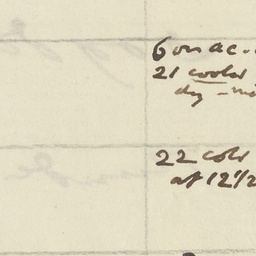 6 on ac.
21 cooler
dry - 
22 cold
at 12½